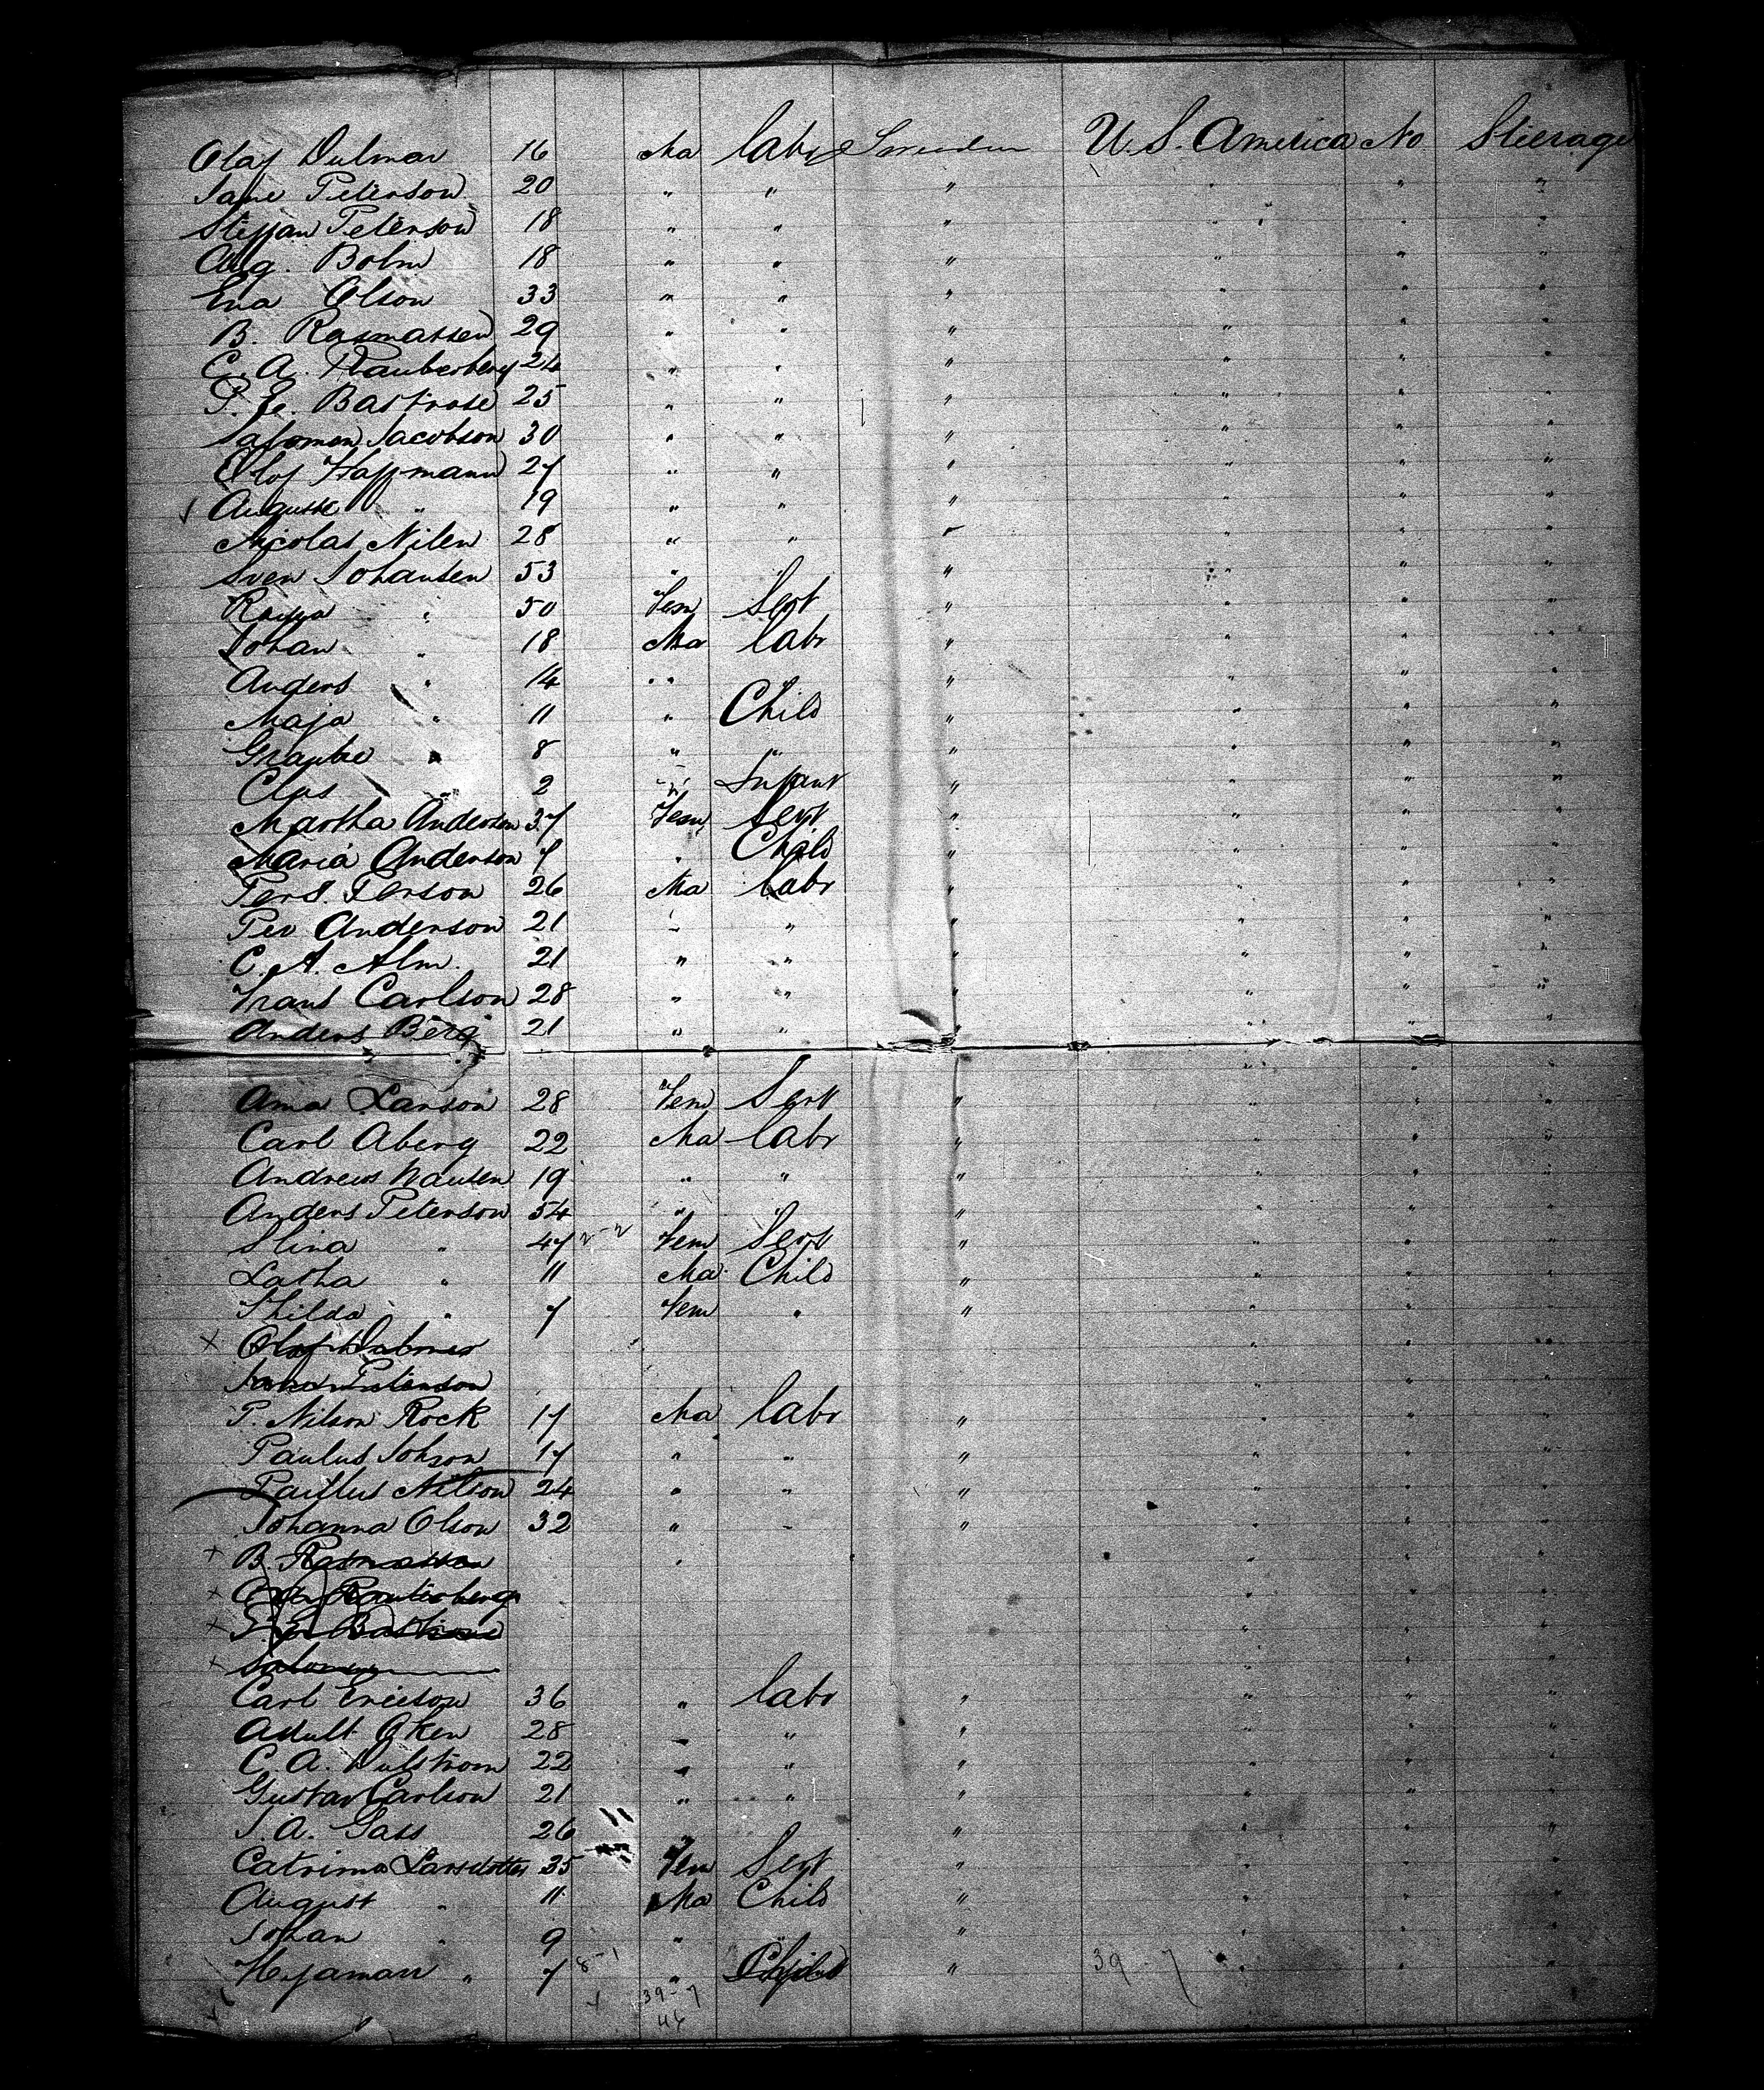 Olaf Dulmar 16 Ma labr Sweden U.S. America No Steerage
Jane Peterson 20 " " " " " "
Steffan Peterson 18 " " " " " "
Aug. Bolm 18 " " " " " "
Eva Olson 33 " " " " " "
B. Rasmassen 29 " " " " " "
C. A. Rauberberg 24 " " " " " "
P. E. Bastrose 25 " " " " " "
Salomon Jacobson 30 " " " " " "
Olof Haffmann 27 " " " " " "
Auguste " 19 " " " " " "
Nicolas Nilen 28 " " " " " "
Sven Johansen 53 " " " " " "
" 50 Fem Sert " " " "
Johan " 18 Ma labr " " " "
Anders " 14 " " " " " "
Maja " 11 " Child " " " "
" 8 " " " " " "
Clas " 2 " Infant " " " "
Martha Andersen 37 Fem Sert " " " "
Maria Anderson 7 " Child " " " "
Pers. Person 26 Ma labr " " " "
Per Anderson 21 " " " " " "
C. A. Alm. 21 " " " " " "
Frans Carlson 28 " " " " " "
Anders Berg 21 " " " " " "
Ama Larson 28 Fem Sert " " " "
Carl Aberg 22 Ma labr " " " "
Andrews 19 " " " " " "
Anders Peterson 54 " " " " " "
Stina " 47 Fem Sert " " " "
Latha " 11 Ma Child " " " "
Thilda " 7 Fem " " " " "
x Olof Dabmer " " "
Peterson " "
P. Nilson Rock 17 Ma labr " " " "
Paulus Johson 17 " " " " " "
Paullus Nilson 24 " " " " " "
Johanna Olson 32 " " " " " "
x B. Rasmassen " " " "
x Rauterberg " " "
x P. E. Bastrose " " "
x Salomon " " "
Carl Ericson 36 " labr " " " "
Adult Oken 28 " " " " " "
C. A. Dulstrom 22 " " " " " "
Gustav Carlson 21 " " " " " "
J. A. Gass 26 " " " "
Catrina Larsdotter 35 Fem Sert " " " "
August " 11 Ma Child " " " "
Johan " 9 " " " " " "
Hjamarr " 7 8-1 " Child " 39-7 " " "
39-7
46